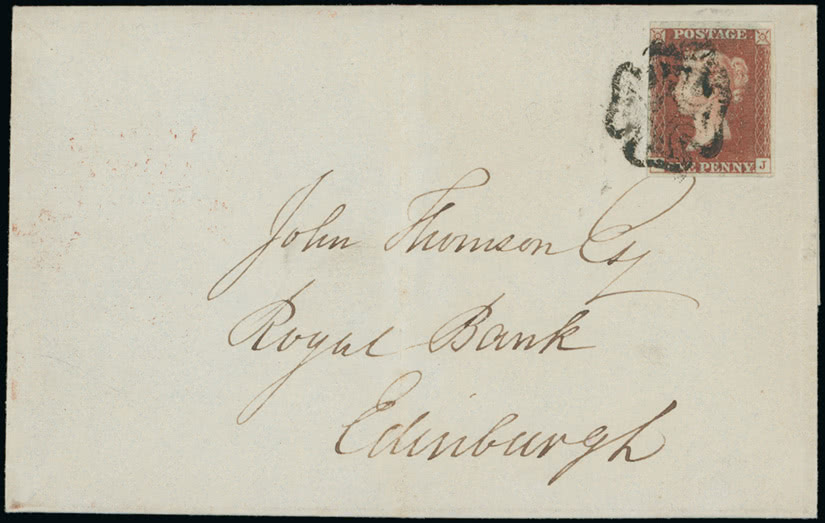 POSTAGE
PENNY
J
John Thomson Esq
Royal Bank
Edinburgh